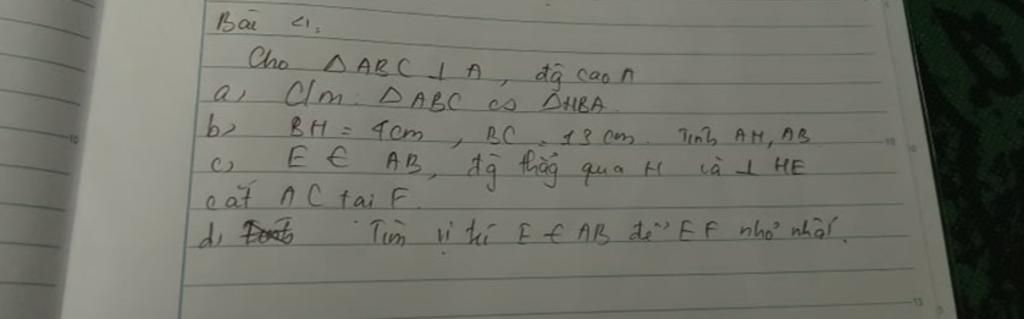 Bài 4:
Cho △ABC ⊥ A, đg cao A
a, C/m: △ABC ∽ △HBA
b, BH = 4cm, BC = 13 cm. Tính AH, AB
c, E ∈ AB, đg thẳg qua H và ⊥ HE
cắt AC tại F.
d, Tìm vị trí E ∈ AB để EF nhỏ nhất.